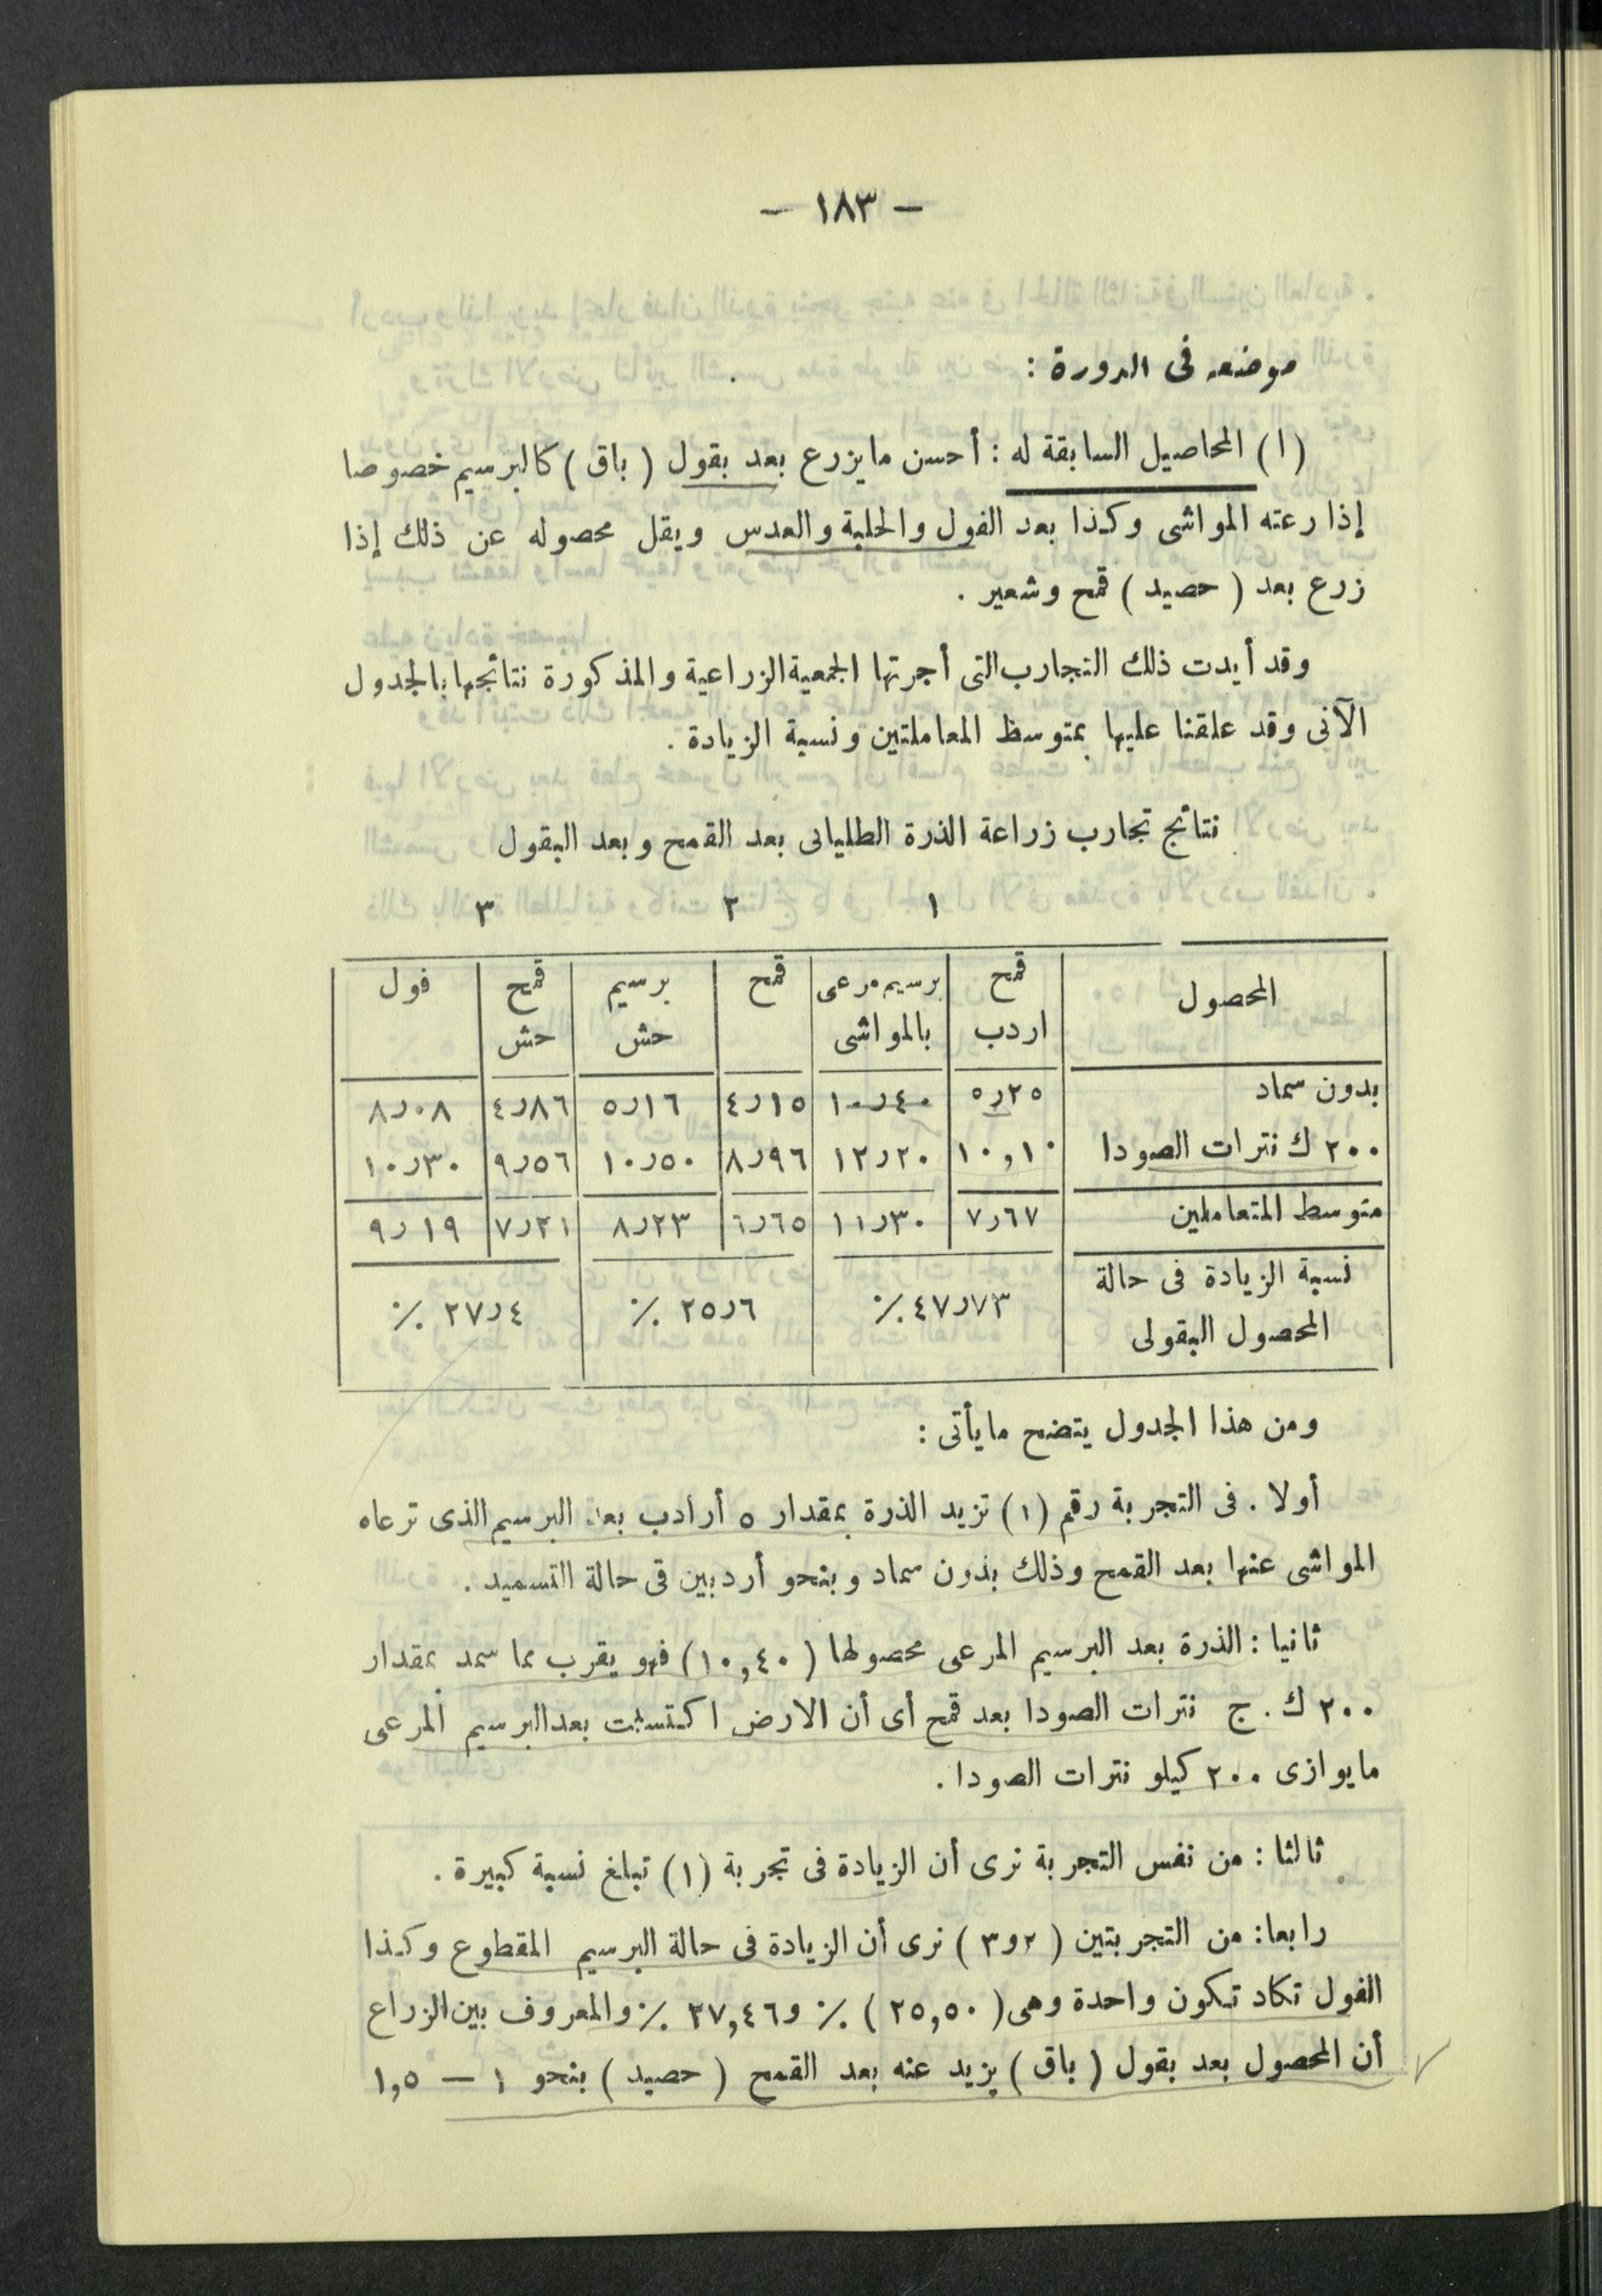 — ١٨٣ —
موضعه فى الدورة :
(ا) المحاصيل السابقة له : أحسن ما يزرع بعد بقول ( باق ) كالبرسيم خصوصا
إذا رعته المواشى وكذا بعد الفول والحلبة والعدس ويقل محصوله عن ذلك إذا
زرع بعد ( حصيد ) قمح وشعير .
وقد أيدت ذلك التجارب التى أجرتها الجمعية الزراعية والمذكورة نتائجها بالجدول
الآتى وقد علقنا عليها بمتوسط المعاملتين ونسبة الزيادة .
نتائج تجارب زراعة الذرة الطليانى بعد القمح وبعد البقول
١ ٢ ٣
المحصول قمح برسيم مرعى قمح برسيم قمح فول
اردب بالمواشى حش حش
بدون سماد ٥ر٢٥ ١٠ر٤٠ ٤ر١٥ ٥ر١٦ ٤ر٨٦ ٨ر٠٨
٢٠٠ ك نترات الصودا ١٠,١٠ ١٢ر٢٠ ٨ر٩٦ ١٠ر٥٠ ٩ر٥٦ ١٠ر٣٠
متوسط المتعاملين ٧ر٦٧ ١١ر٣٠ ٦ر٦٥ ٨ر٢٣ ٧ر٢١ ٩ر١٩
نسبة الزيادة فى حالة
المحصول البقولى ٤٧ر٧٣ ٪ ٢٥ر٦ ٪ ٢٧ر٤ ٪
ومن هذا الجدول يتضح ما يأتى :
أولا . فى التجربة رقم (١) تزيد الذرة بمقدار ٥ أرادب بعد البرسيم الذى ترعاه
المواشى عنها بعد القمح وذلك بدون سماد وبنحو أردبين فى حالة التسميد .
ثانيا : الذرة بعد البرسيم المرعى محصولها ( ١٠,٤٠ ) فهو يقرب مما سمد بمقدار
٢٠٠ ك . ج نترات الصودا بعد قمح أى أن الارض اكتسبت بعد البرسيم المرعى
ما يوازى ٢٠٠ كيلو نترات الصودا .
ثالثا : من نفس التجربة نرى أن الزيادة فى تجربة (١) تبلغ نسبة كبيرة .
رابعا : من التجربتين ( ٢ و ٣ ) نرى أن الزيادة فى حالة البرسيم المقطوع وكذا
الفول تكاد تكون واحدة وهى ( ٢٥,٥٠ ) ٪ و ٢٧,٤٦ ٪ والمعروف بين الزراع
أن المحصول بعد بقول ( باق ) يزيد عنه بعد القمح ( حصيد ) بنحو ١ — ١,٥